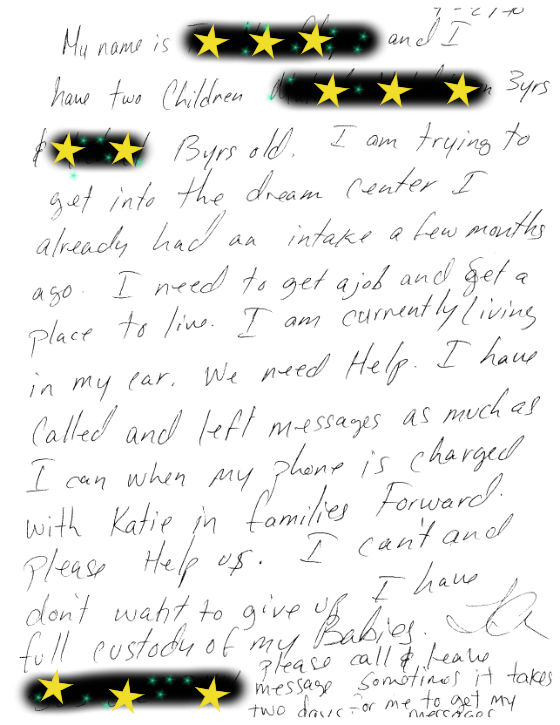 My name is and I
have two Children 3yrs
& 13yrs old. I am trying to
get into the dream center I
already had an intake a few months
ago. I need to get a job and get a
place to live. I am currently living
in my car. We need Help. I have
Called and left messages as much as
I can when my phone is charged
with Katie in families Forward.
please Help us. I can't and
don't want to give up I have
full custody of my Babies.
please call & leave
message sometimes it takes
two days for me to get my
messages